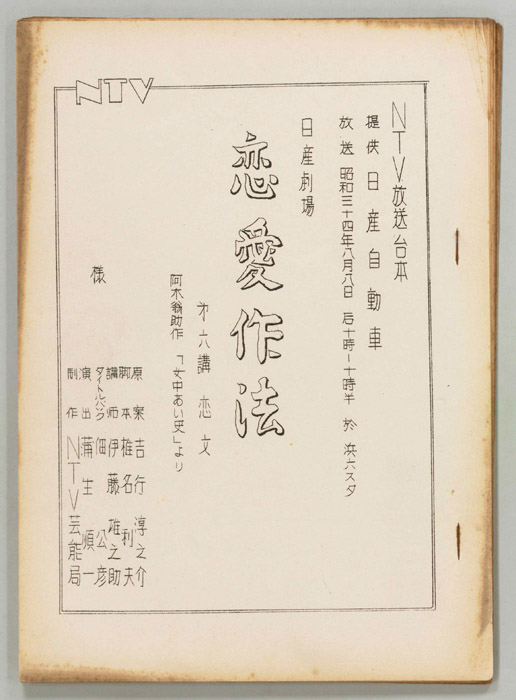 NTV
NTV放送台本
提供 日産自動車
放送 昭和三十四年八月八日 后十時ー十時半 於 浜六スタ
日産劇場
恋愛作法
オ六講 恋文
阿木翁助作 「女中あい史」より
様
原案 吉行淳之介
脚本 椎名利夫
講師 伊藤雄之助
タイトルバック 佃公彦
演出 蒲生順一
制作 NTV芸能局